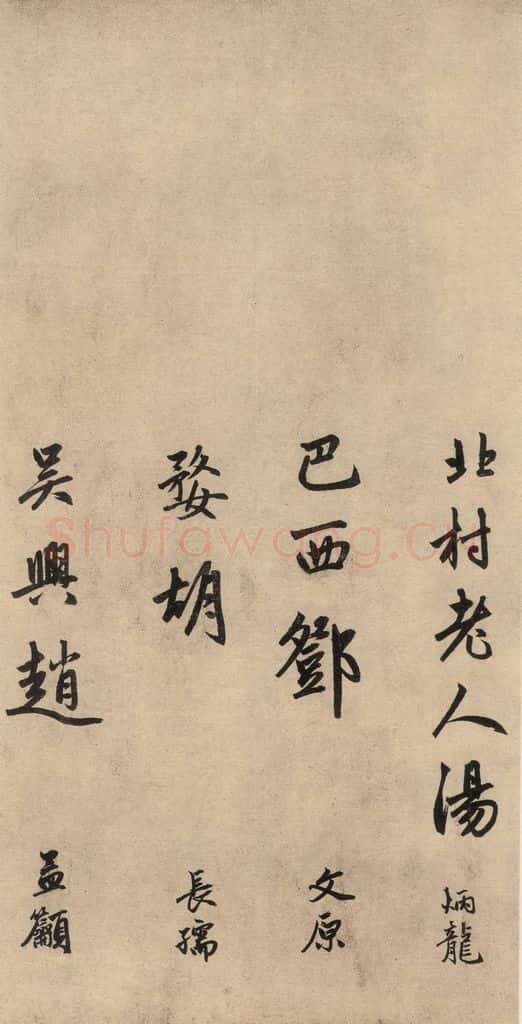 北村老人湯 炳龍
巴西鄧 文原
婺胡 長孺
吳興趙 孟籲
Shufawang.CN